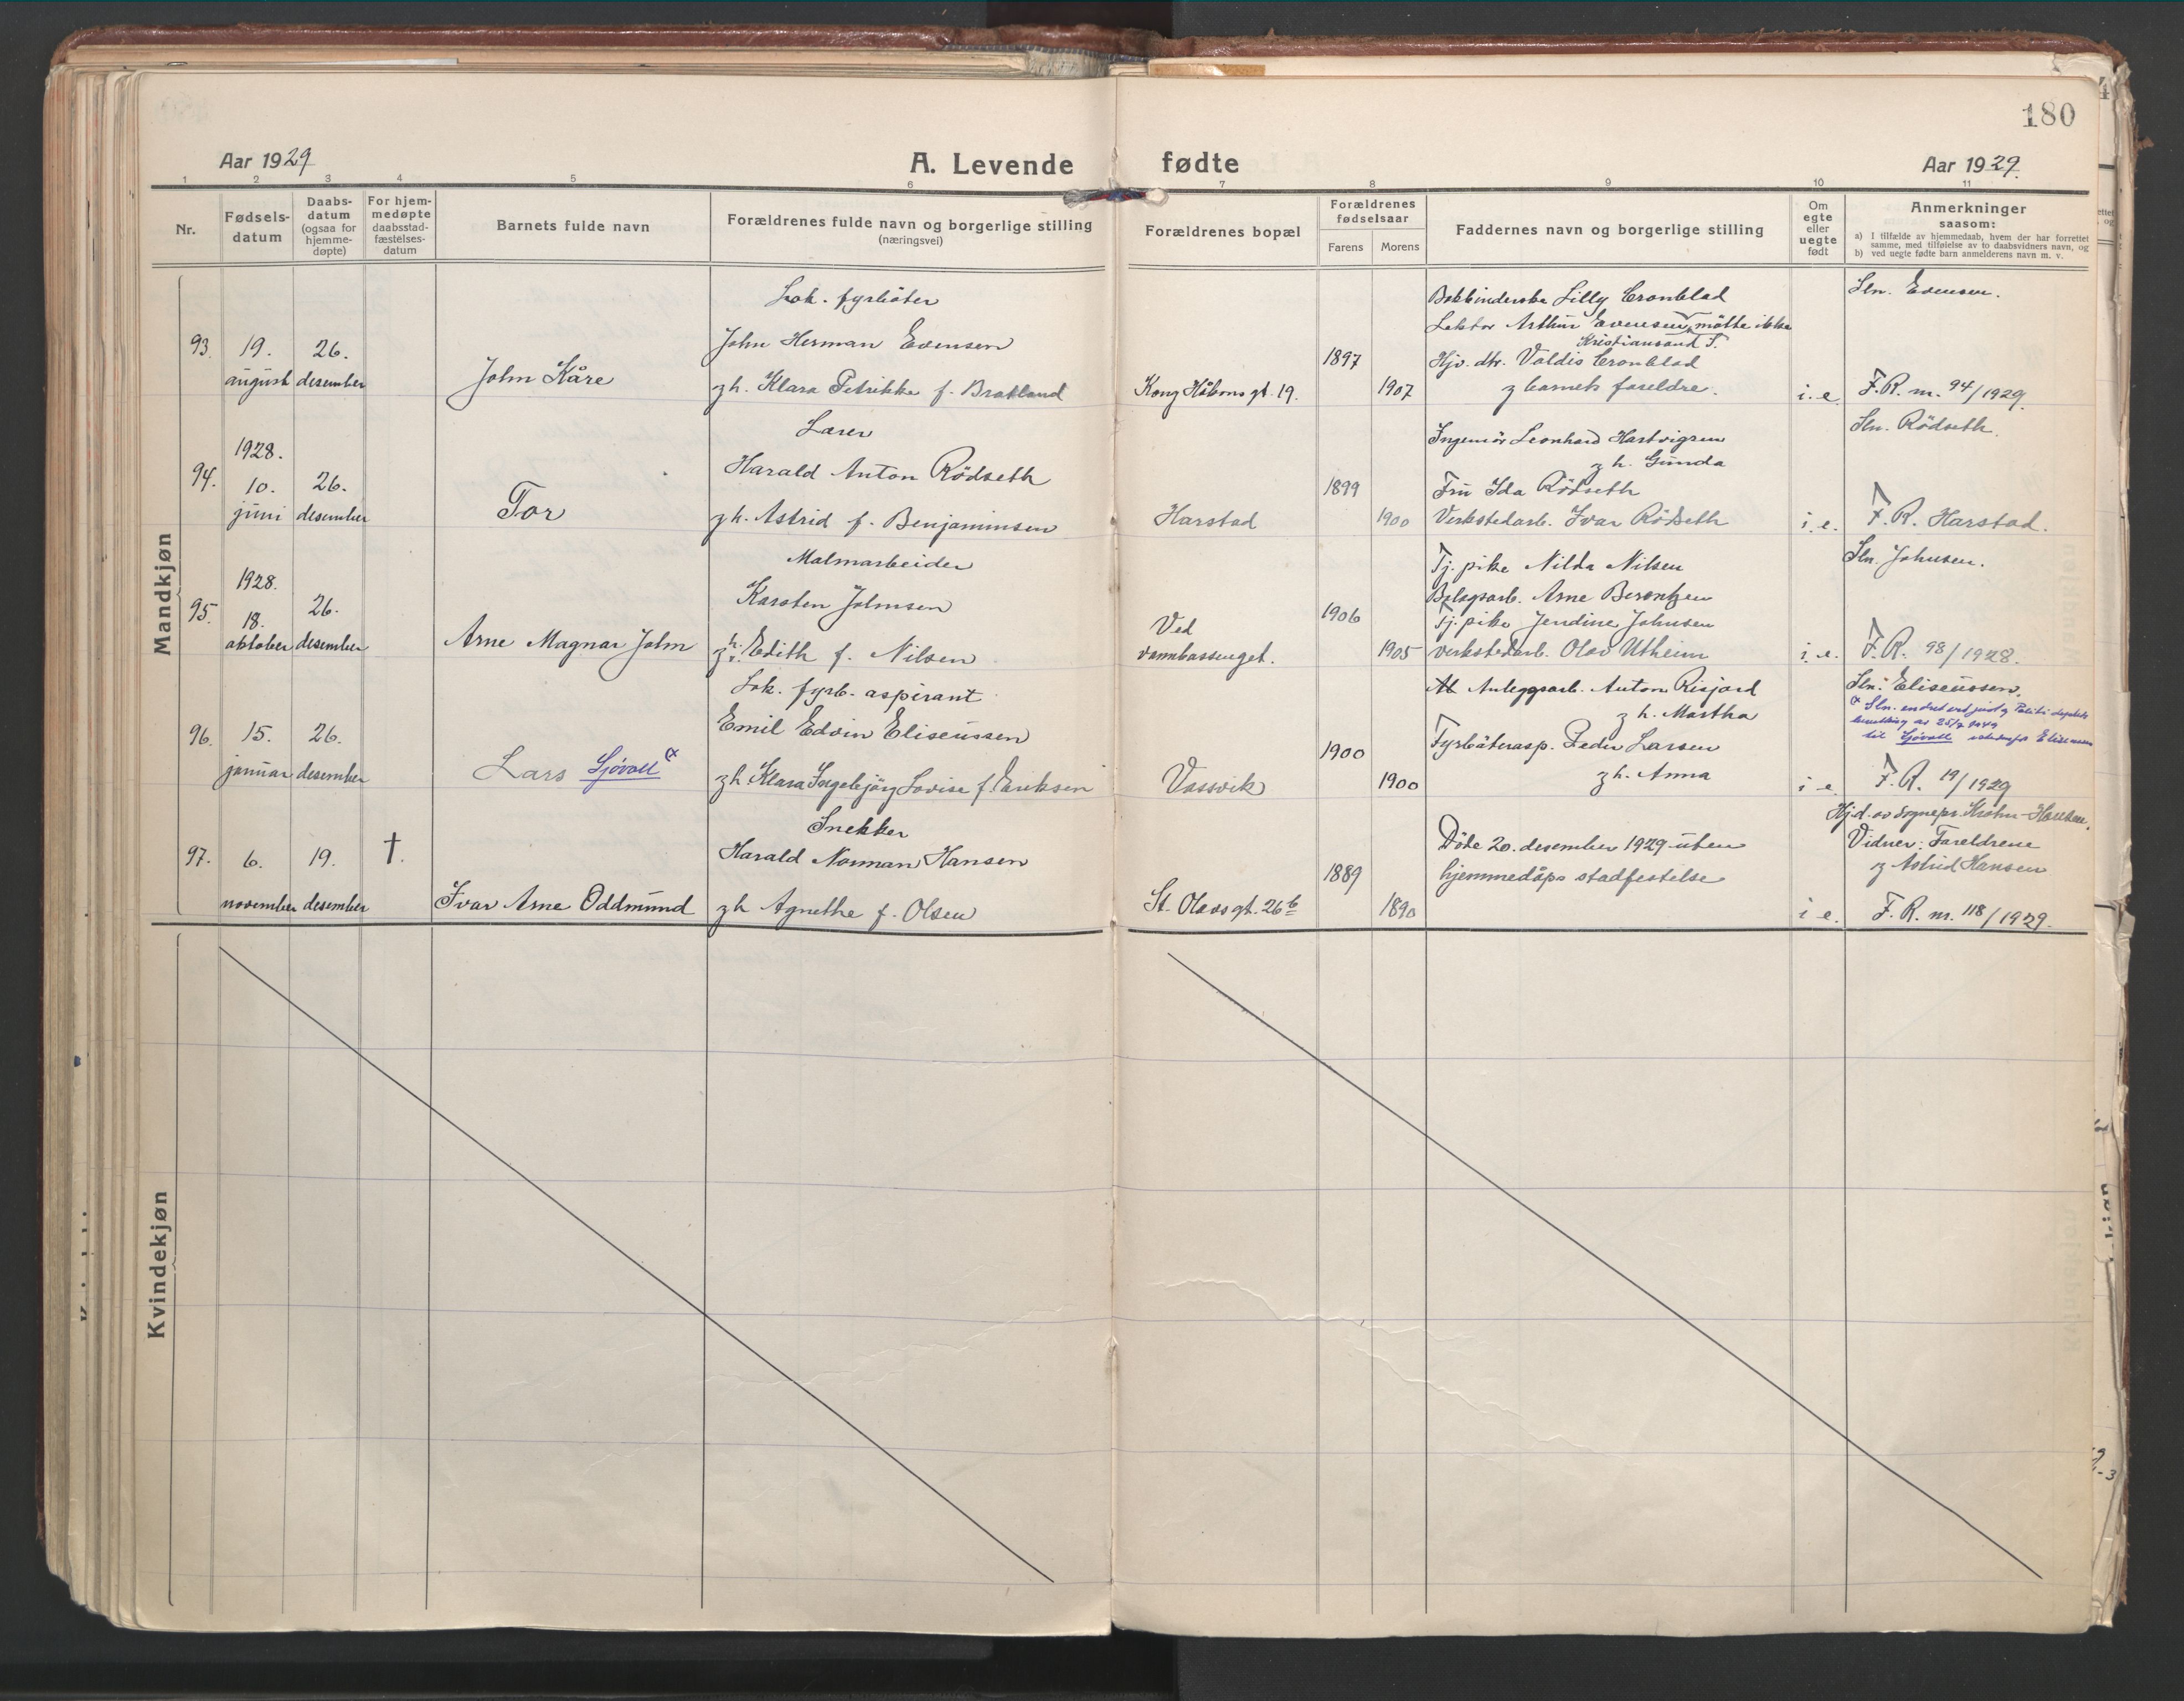 180
Aar 1929
A. Levende fødte
Aar 1929.
1 2 3 4 5 6 7 8 9 10 11
Nr.
Fødsels-
datum
Daabs-
datum
(ogsaa for
hjemme-
døpte)
For hjem-
medøpte
daabsstad-
fæstelses-
datum
Barnets fulde navn
Forældrenes fulde navn og borgerlige stilling
(næringsvei)
Forældrenes bopæl
Forældrenes
fødselsaar
Farens
Morens
Faddernes navn og borgerlige stilling
Om
egte
eller
uegte
født
Anmerkninger
saasom:
a) I tilfælde av hjemmedaab, hvem der har forrettet
samme, med tilføielse av to daabsvidners navn, og
b) ved uegte fødte barn anmelderens navn m. v.
Mandkjøn
93. 19. august
26. desember
John Kåre
Lok. fyrbøter
John Herman Evensen
og h. Klara Petrikke f. Bratland
Kong Håkons gt. 19.
1897
1907
Bokbinderske Lilly Cronblad
Lektor Arthur Evensen, møtte ikke
Kristiansand S.
Hjv. dtr. Valdis Cronblad
og barnets foreldre.
i. e.
Sln. Evensen.
F. R. nr. 94/1929.
94. 1928.
10. juni
26. desember
Tor
Lærer
Harald Anton Rödseth
og h. Astrid f. Benjaminsen
Harstad
1899
1900
Ingeniör Leonhard Hartvigsen
og h. Gunda
Fru Ida Rödseth
Verkstedarb. Ivar Rödseth
i. e.
Sln. Rödseth.
F. R. Harstad.
95. 1928.
18. oktober
26. desember
Arne Magnar John
Malmarbeider
Karsten Johnsen
og h. Edith f. Nilsen
Ved
vannbassenget.
1906
1905
Tj. pike Nilda Nilsen
Belagsarb. Arne Berentzen
Tj. pike Jendine Johnsen
Verkstedarb. Olav Utheim
i. e.
Sln. Johnsen.
F. R. 98/1928.
96. 15. januar
26. desember
Lars Sjövoll
Lok. fyrb. aspirant
Emil Edvin Eliseussen
og h Klara Ingebjörg Lovise f. Eriksen
Vassvik
1900
1900
Anleggsarb. Anton Risjord
og h. Martha
Fyrböterasp. Peder Larsen
og h. Anna
i e.
Sln. Eliseussen.
Sln. endret ved just. og Politi dep.tets
bevilling av 25/7 1949
til Sjövoll istedenfor Eliseussen
F. R. 19/1929
97. 6. november
19. desember
†.
Ivar Arne Oddmund
Snekker
Harald Norman Hansen
og h Agnethe f. Olsen
St. Olavs gt. 26 b
1889
1890
Döde 20. desember 1929 uten
hjemmedåps stadfestelse
i e.
Hj.d. av sognepr. Krohn-Hansen.
Vidner: Foreldrene
og Astrid Hansen
F. R. nr. 118/1929.
Kvindekjøn